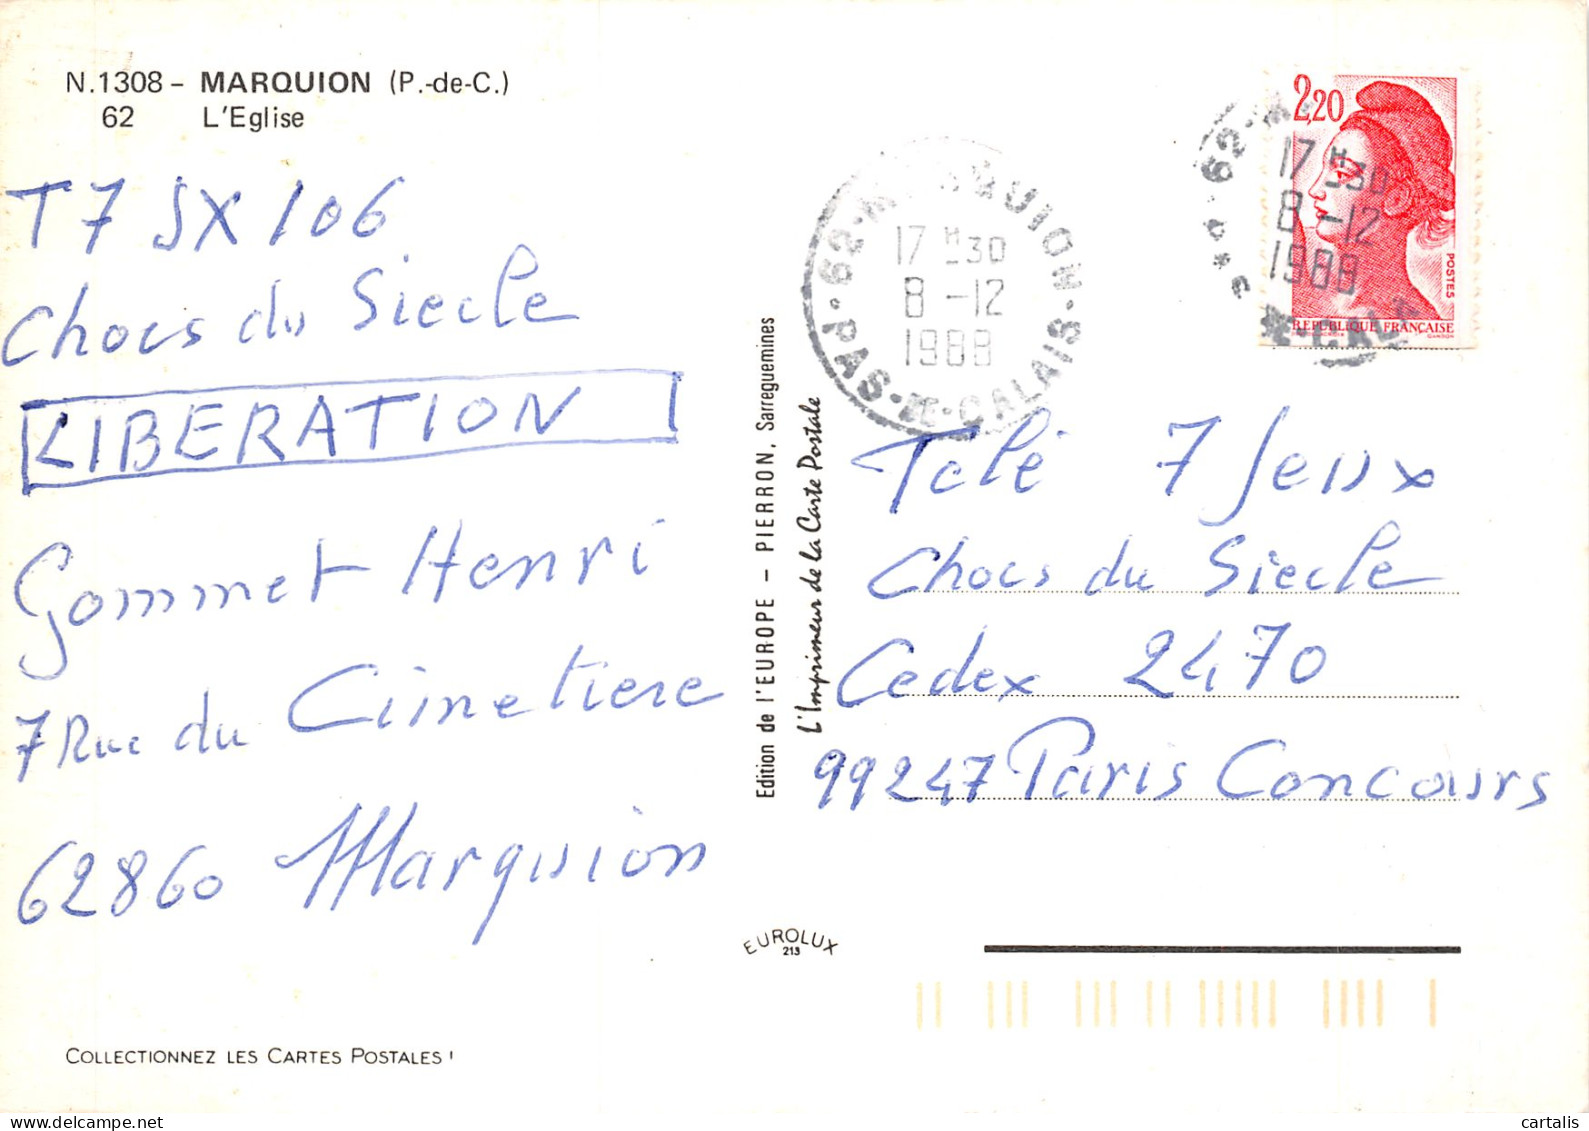 N.1308 - MARQUION (P.-de-C.)
62 L'Eglise
T7 JX 106
Chocs du Siecle
LIBERATION
Gommet Henri
7 Rue du Cimetiere
62860 Marquion
COLLECTIONNEZ LES CARTES POSTALES !
Edition de l'EUROPE - PIERRON, Sarreguemines
L'Imprimeur de la Carte Postale
EUROLUX
213
62 - MARQUION - PAS-DE-CALAIS
17 H30
8 -12
1988
2,20
POSTES
REPUBLIQUE FRANÇAISE
GANDON
17 H30
8 -12
1988
Telé 7 Jeux
Chocs du Siecle
Cedex 2470
99247 Paris Concours
cartalis
www.delcampe.net